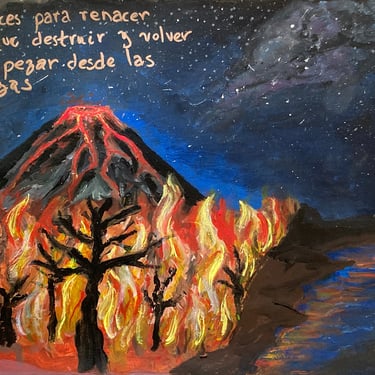 ces para renacer
ue destruir y volver
pezar desde las
zas